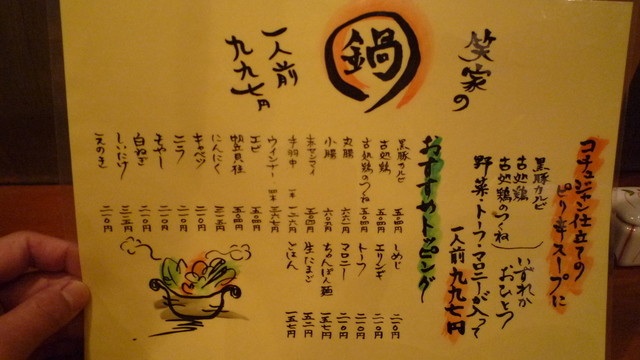 笑家の
鍋
一人前
九九七円
コチュジャン仕立ての
ピリ辛スープに
黒豚カルビ
古処鶏
古処鶏のつくね
いずれか
おひとつ
野菜・トーフ・マロニーが入って
一人前九九七円
おすすめトッピング
黒豚カルビ 五〇四円
古処鶏 五〇四円
古処鶏のつくね 五〇四円
丸腸 六六一円
小腸 六〇〇円
手羽中 一本 一二六円
ウインナー 四本 三六七円
エビ 五〇四円
帆立貝柱 五〇四円
にんにく 三一五円
キャベツ 二一〇円
ニラ 二一〇円
もやし 二一〇円
白ねぎ 二一〇円
しいたけ 三一五円
えのき 二一〇円
しめじ 二一〇円
エリンギ 二一〇円
トーフ 二一〇円
マロニー 二一〇円
ちゃんぽん麺 二一〇円
生たまご 五二円
ごはん 一五七円